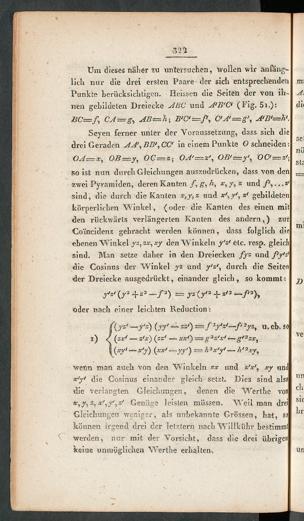 322
Um dieses näher zu untersuchen, wollen wir anfäng-
lich nur die drei ersten Paare der sich entsprechenden
Punkte berücksichtigen. Heissen die Seiten der von ih-
nen gebildeten Dreiecke ABC und A'B'C' (Fig. 51.):
BC=f, CA=g, AB=h; B'C'=f', C'A'=g', A'B'=h'.
Seyen ferner unter der Voraussetzung, dass sich die
drei Geraden AA', BB', CC' in einem Punkte O schneiden:
OA=x, OB=y, OC=z; OA'=x', OB'=y', OC'=z';
so ist nun durch Gleichungen auszudrücken, dass von den
zwei Pyramiden, deren Kanten f, g, h, x, y, z und f', ...z'
sind, die durch die Kanten x, y, z und x', y', z' gebildeten
körperlichen Winkel, (oder die Kanten des einen mit
den rückwärts verlängerten Kanten des andern,) zur
Coïncidenz gebracht werden können, dass folglich die
ebenen Winkel yz, zx, xy den Winkeln y'z' etc. resp. gleich
sind. Man setze daher in den Dreiecken fyz und f'y'z'
die Cosinus der Winkel yz und y'z', durch die Seiten
der Dreiecke ausgedrückt, einander gleich, so kommt:
y'z'(y²+z²−f²) = yz(y'²+z'²−f'²),
oder nach einer leichten Reduction:
(yz'−y'z)(yy'−zz') = f²y'z'−f'²yz, u. eb. so
1) (zx'−z'x)(zz'−xx') = g²z'x'−g'²zx,
(xy'−x'y)(xx'−yy') = h²x'y'−h'²xy,
wenn man auch von den Winkeln zx und z'x', xy und
x'y' die Cosinus einander gleich setzt. Dies sind also
die verlangten Gleichungen, denen die Werthe von
x, y, z, x', y', z' Genüge leisten müssen. Weil man drei
Gleichungen weniger, als unbekannte Grössen, hat, so
können irgend drei der letztern nach Willkühr bestimmt
werden, nur mit der Vorsicht, dass die drei übrigen
keine unmöglichen Werthe erhalten.